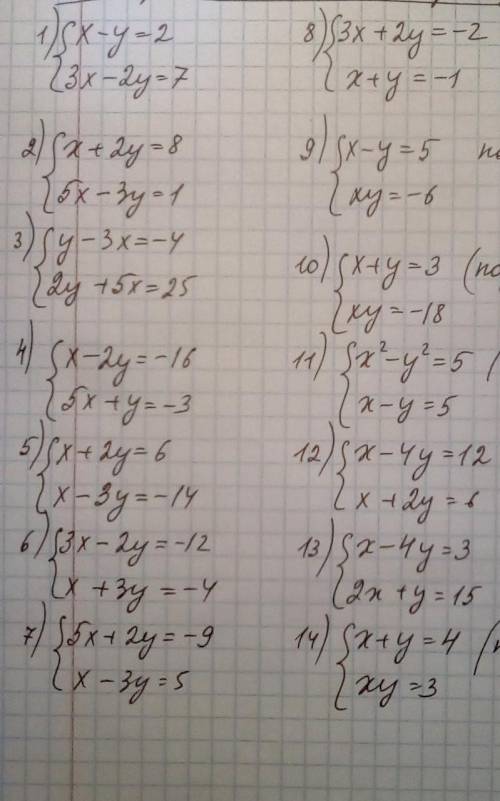 1) { x - y = 2
3x - 2y = 7
2) { x + 2y = 8
5x - 3y = 1
3) { y - 3x = -4
2y + 5x = 25
4) { x - 2y = -16
5x + y = -3
5) { x + 2y = 6
x - 3y = -14
6) { 3x - 2y = -12
x + 3y = -4
7) { 5x + 2y = -9
x - 3y = 5
8) { 3x + 2y = -2
x + y = -1
9) { x - y = 5
xy = -6
10) { x + y = 3
xy = -18
11) { x² - y² = 5 (
x - y = 5
12) { x - 4y = 12
x + 2y = 6
13) { x - 4y = 3
2x + y = 15
14) { x + y = 4
xy = 3